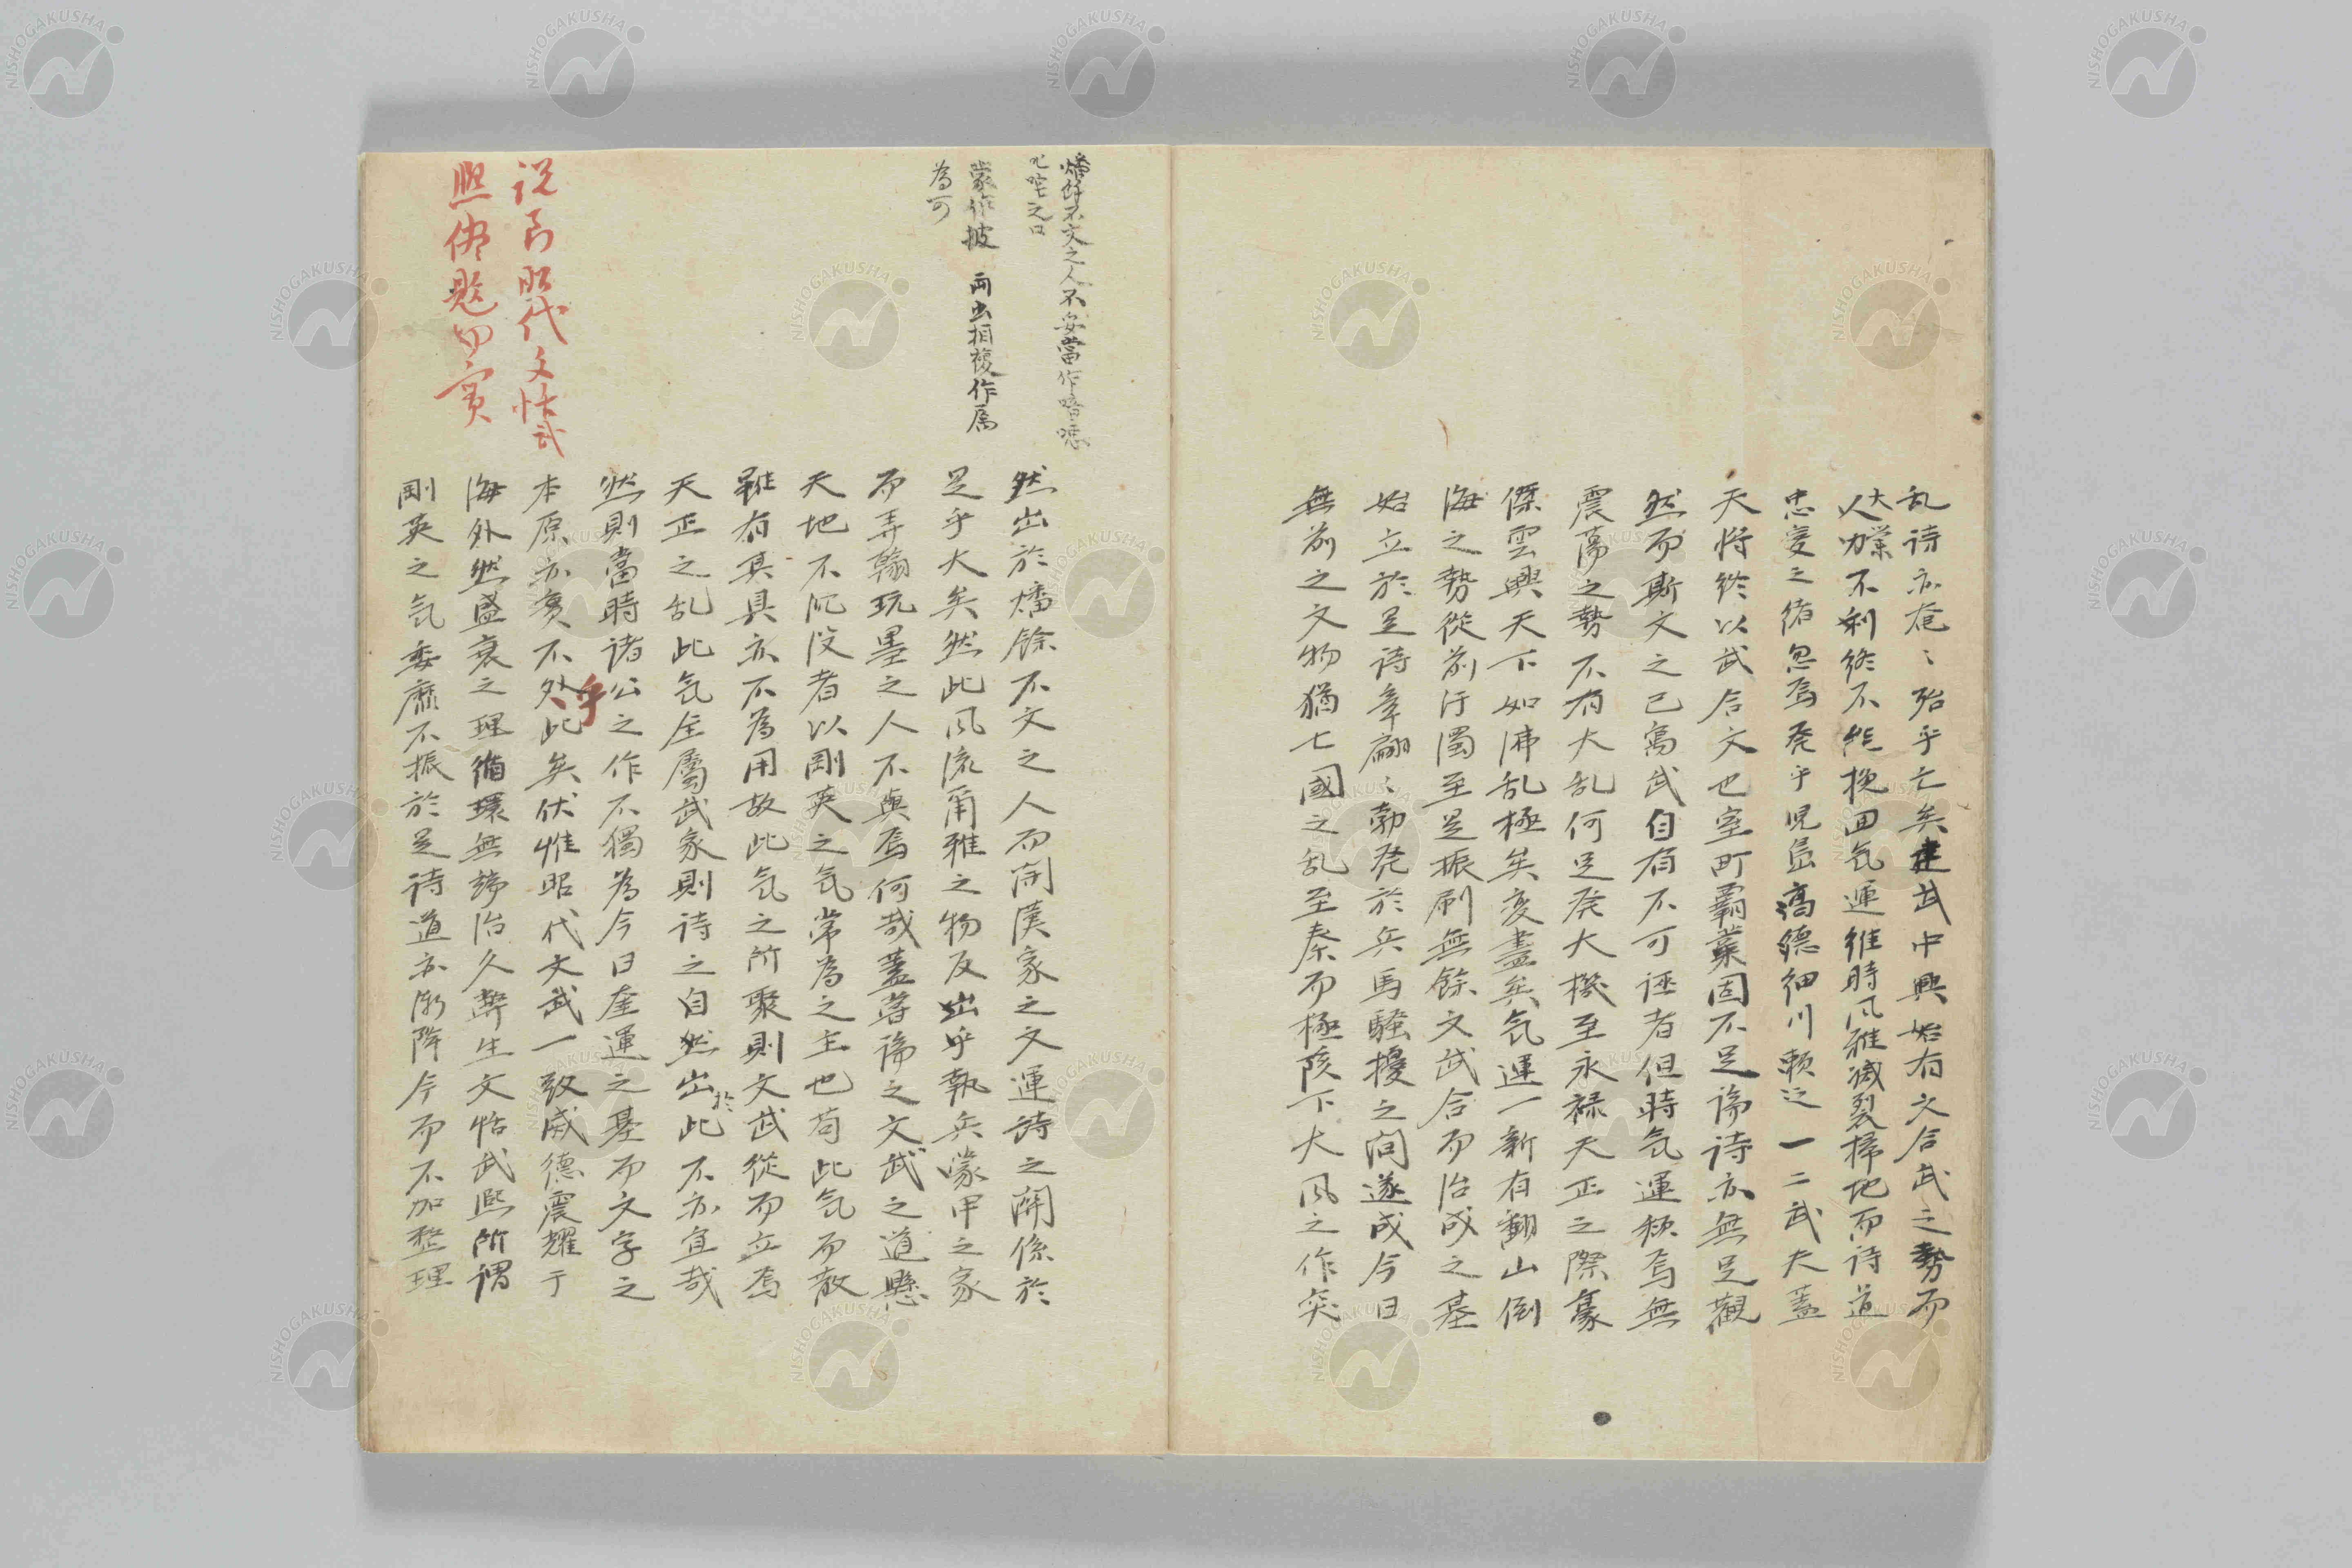 乱詩亦奄〻殆乎亡矣建武中興始有文合武之勢而
大業不利終不能挽回気運維時風雅滅裂掃地而詩道
忠愛之緒忽焉発乎児島高徳細川頼之一二武夫蓋
天将終以武合文也室町覇業固不足論詩亦無足観
然而斯文之已寓武自有不可誣者但時気運秋焉無
震蕩之勢不有大乱何足発大機至永禄天正之際豪
傑雲興天下如沸乱極矣変盡矣気運一新有翻山倒
海之勢従前汙濁至是振刷無餘文武合而治成之基
始立於是詩章翩〻勃発於兵馬騒擾之間遂成今日
無前之文物猶七國之乱至秦而極陔下大風之作突
然出於燔餘不文之人而開漢家之文運詩之開係於
是乎大矣然此風流爾雅之物反出乎執兵蒙甲之家
而弄翰玩墨之人不與焉何哉蓋嘗論之文武之道懸
天地不沉没者以剛英之気常為之主也苟此気而散
雖有其具亦不為用故此気之所聚則文武從而立焉
天正之乱此気全屬武家則詩之自然出於此不亦宜哉
然則當時諸公之作不獨為今日奎運之基而文字之
本原亦寔不外此矣伏惟昭代文武一致威徳震耀于
乎
海外然盛衰之理循環無端治久弊生文恬武熙所謂
剛英之気委靡不振於是詩道亦漸降今而不加整理
燔餘不文之人不妥當作喑噁
叱咤之口
蒙作披 両出相複作属
為可
説到昭代文恬武
熙